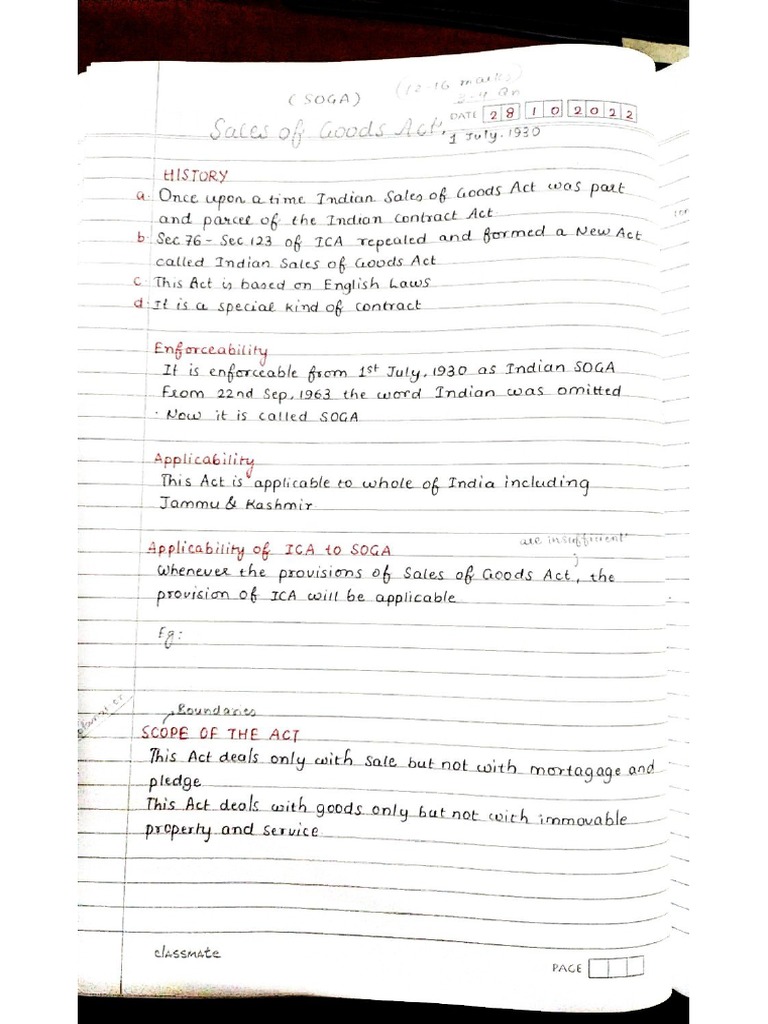 (SOGA)
(12-16 marks)
3-4 Qn
DATE 28 10 2022
Sales of Goods Act,
1 July. 1930
HISTORY
a. Once upon a time Indian Sales of Goods Act was part
and parcel of the Indian Contract Act
b. Sec.76 - Sec.123 of ICA repealed and formed a New Act
called Indian Sales of Goods Act
c. This Act is based on English Laws
d. It is a special kind of contract
Enforceability
It is enforceable from 1st July, 1930 as Indian SOGA
From 22nd Sep, 1963 the word Indian was omitted
. Now it is called SOGA
Applicability
This Act is applicable to whole of India including
Jammu & Kashmir.
Applicability of ICA to SOGA
are insufficient
Whenever the provisions of Sales of Goods Act, the
provision of ICA will be applicable
Eg:
Boundaries
SCOPE OF THE ACT
This Act deals only with sale but not with mortagage and
pledge
This Act deals with goods only but not with immovable
property and service
classmate
PAGE